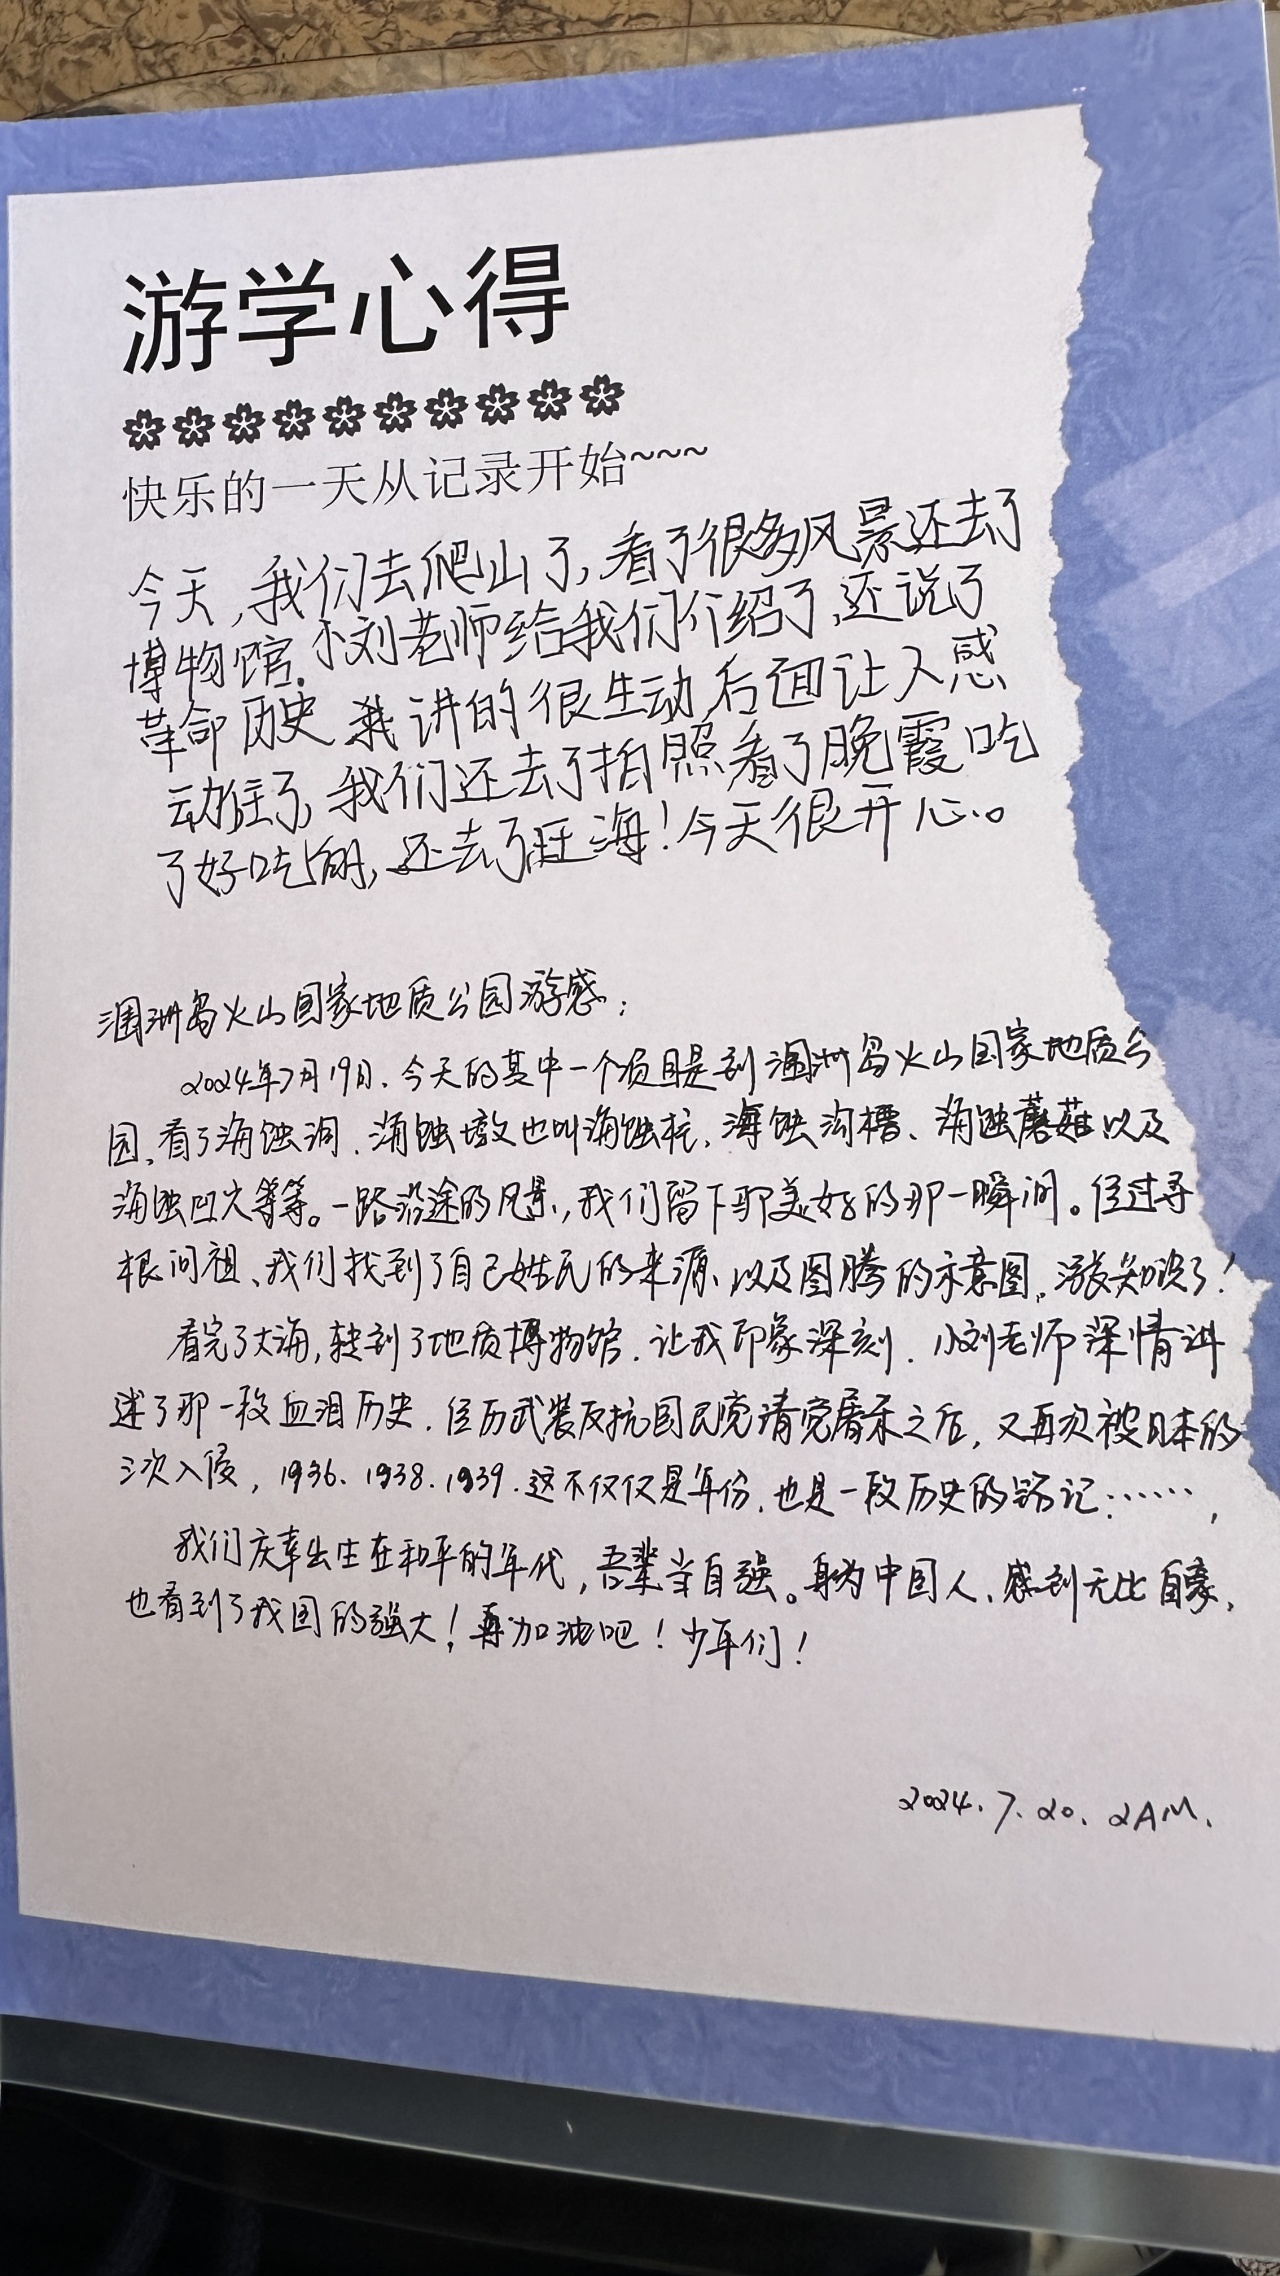 游学心得
快乐的一天从记录开始~~~
今天,我们去爬山了,看了很多风景还去了
博物馆.小刘老师给我们介绍了,还说了
革命历史 讲的很生动,后面让人感
动住了,我们还去了拍照看了晚霞吃
了好吃的,还去了赶海!今天很开心。
涠洲岛火山国家地质公园游感:
2024年7月19日、今天的其中一个项目是到涠洲岛火山国家地质公
园、看了海蚀洞、海蚀墩也叫海蚀柱、海蚀沟槽、海蚀蘑菇以及
海蚀凹穴等等。一路沿途的风景,我们留下那美好的那一瞬间。经过寻
根问祖、我们找到了自己姓氏的来源、以及图腾的示意图,涨知识了!
看完了大海,转到了地质博物馆.让我印象深刻.小刘老师深情讲
述了那一段血泪历史.经历武装反抗国民党清党屠杀之后,又再次被日本的
三次入侵,1936、1938.1939.这不仅仅是年份.也是一段历史的铭记……,
我们庆幸出生在和平的年代,吾辈当自强。身为中国人、感到无比自豪,
也看到了我国的强大!再加油吧!少年们!
2024.7.20.2AM.